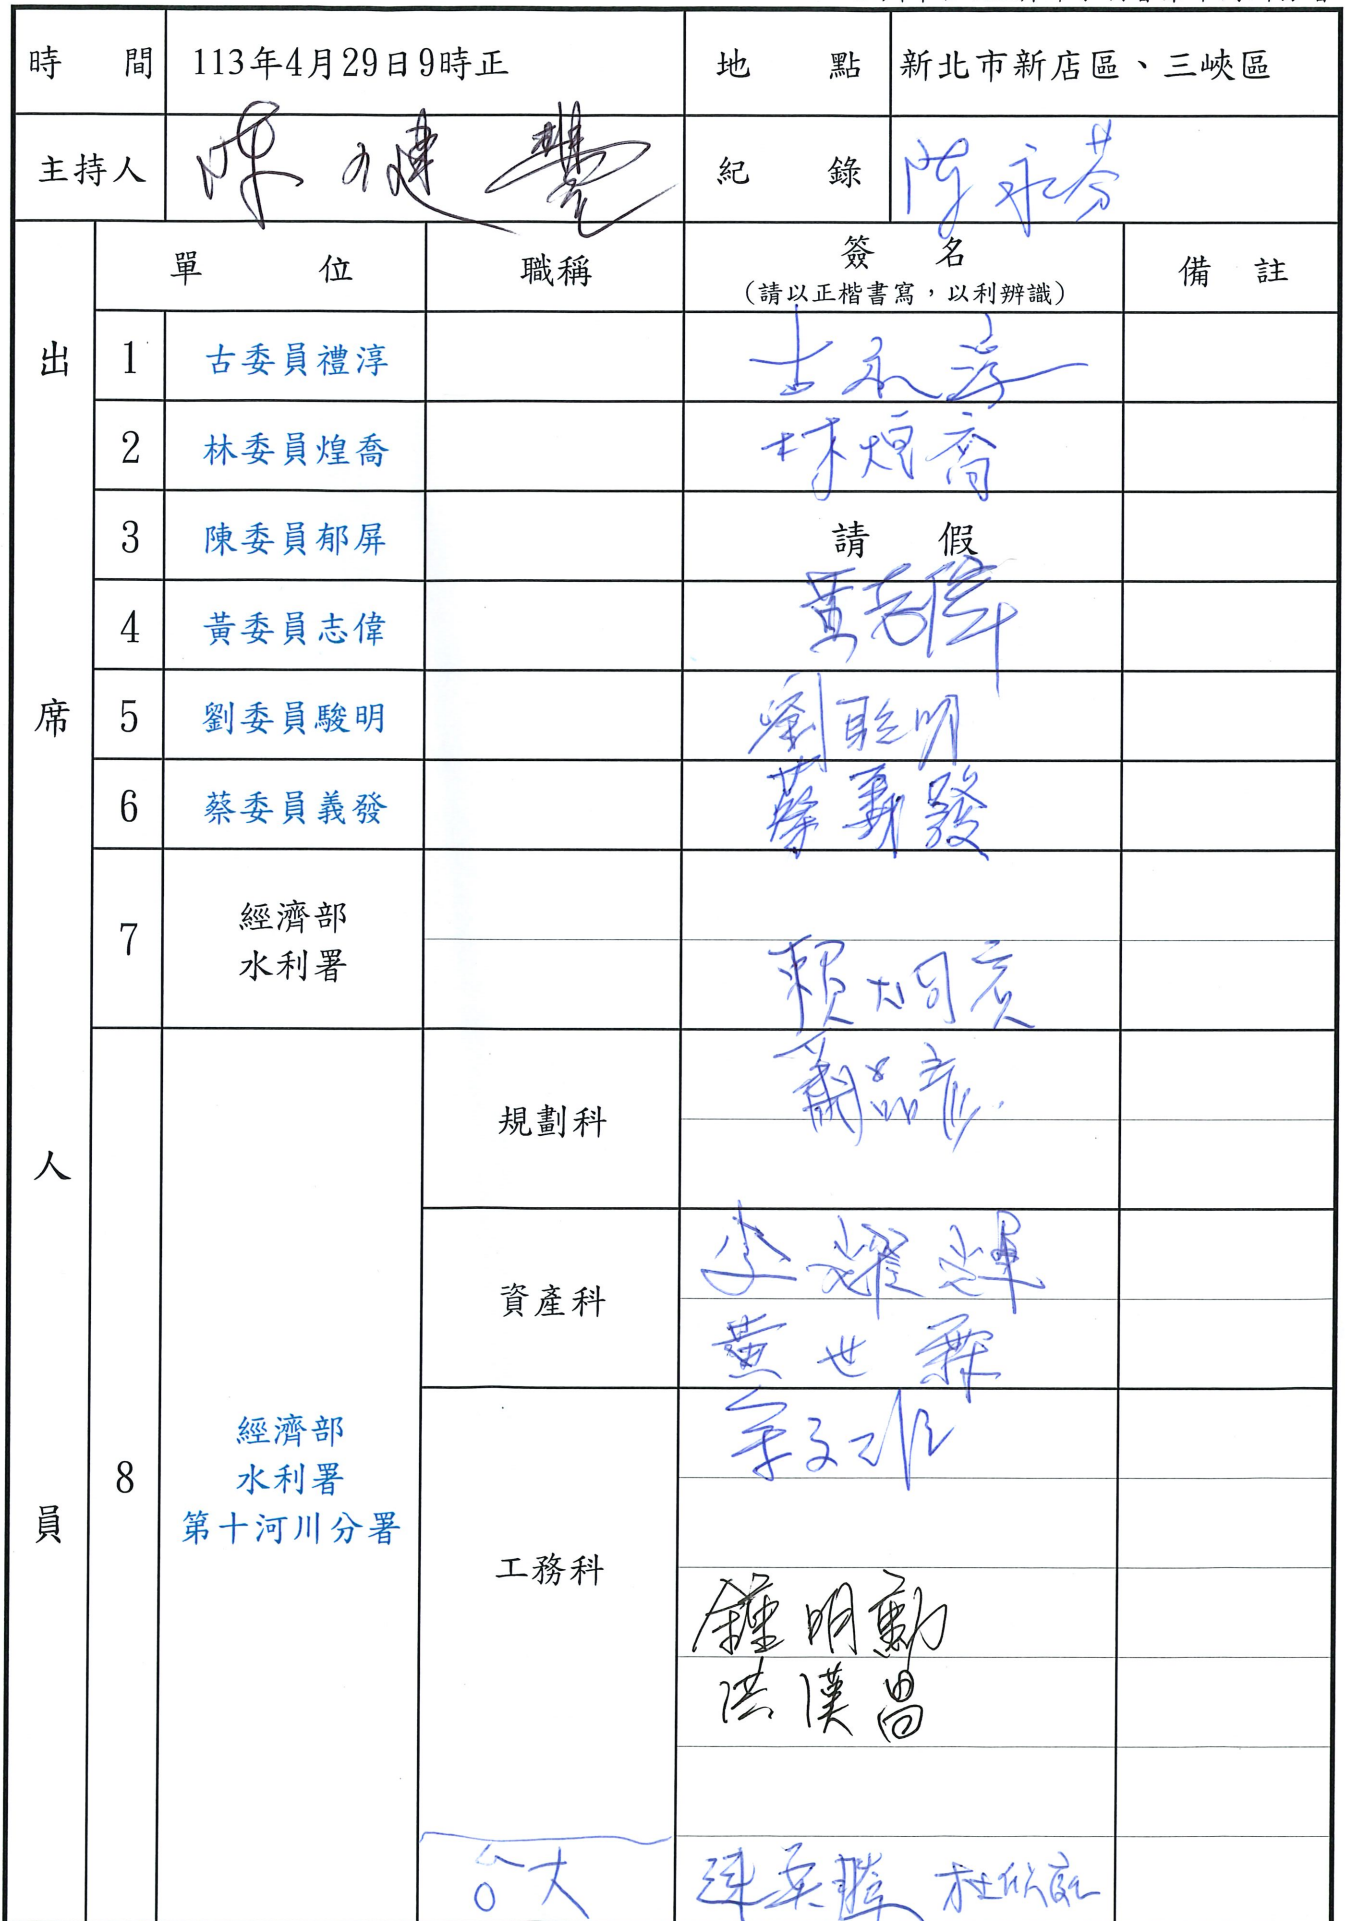 時 間 113年4月29日9時正 地 點 新北市新店區、三峽區
主持人 陳健豐 紀 錄 陳永芬
出席人員
單 位 職稱 簽 名 備 註
(請以正楷書寫,以利辨識)
1 古委員禮淳 古禮淳
2 林委員煌喬 林煌喬
3 陳委員郁屏 請 假
4 黃委員志偉 黃志偉
5 劉委員駿明 劉聰明
6 蔡委員義發 蔡義發
7 經濟部
水利署
賴
8 經濟部
水利署
第十河川分署
規劃科 蕭品
資產科 李耀輝
黃世霖
工務科
鍾明勳
洪漢昌
台大